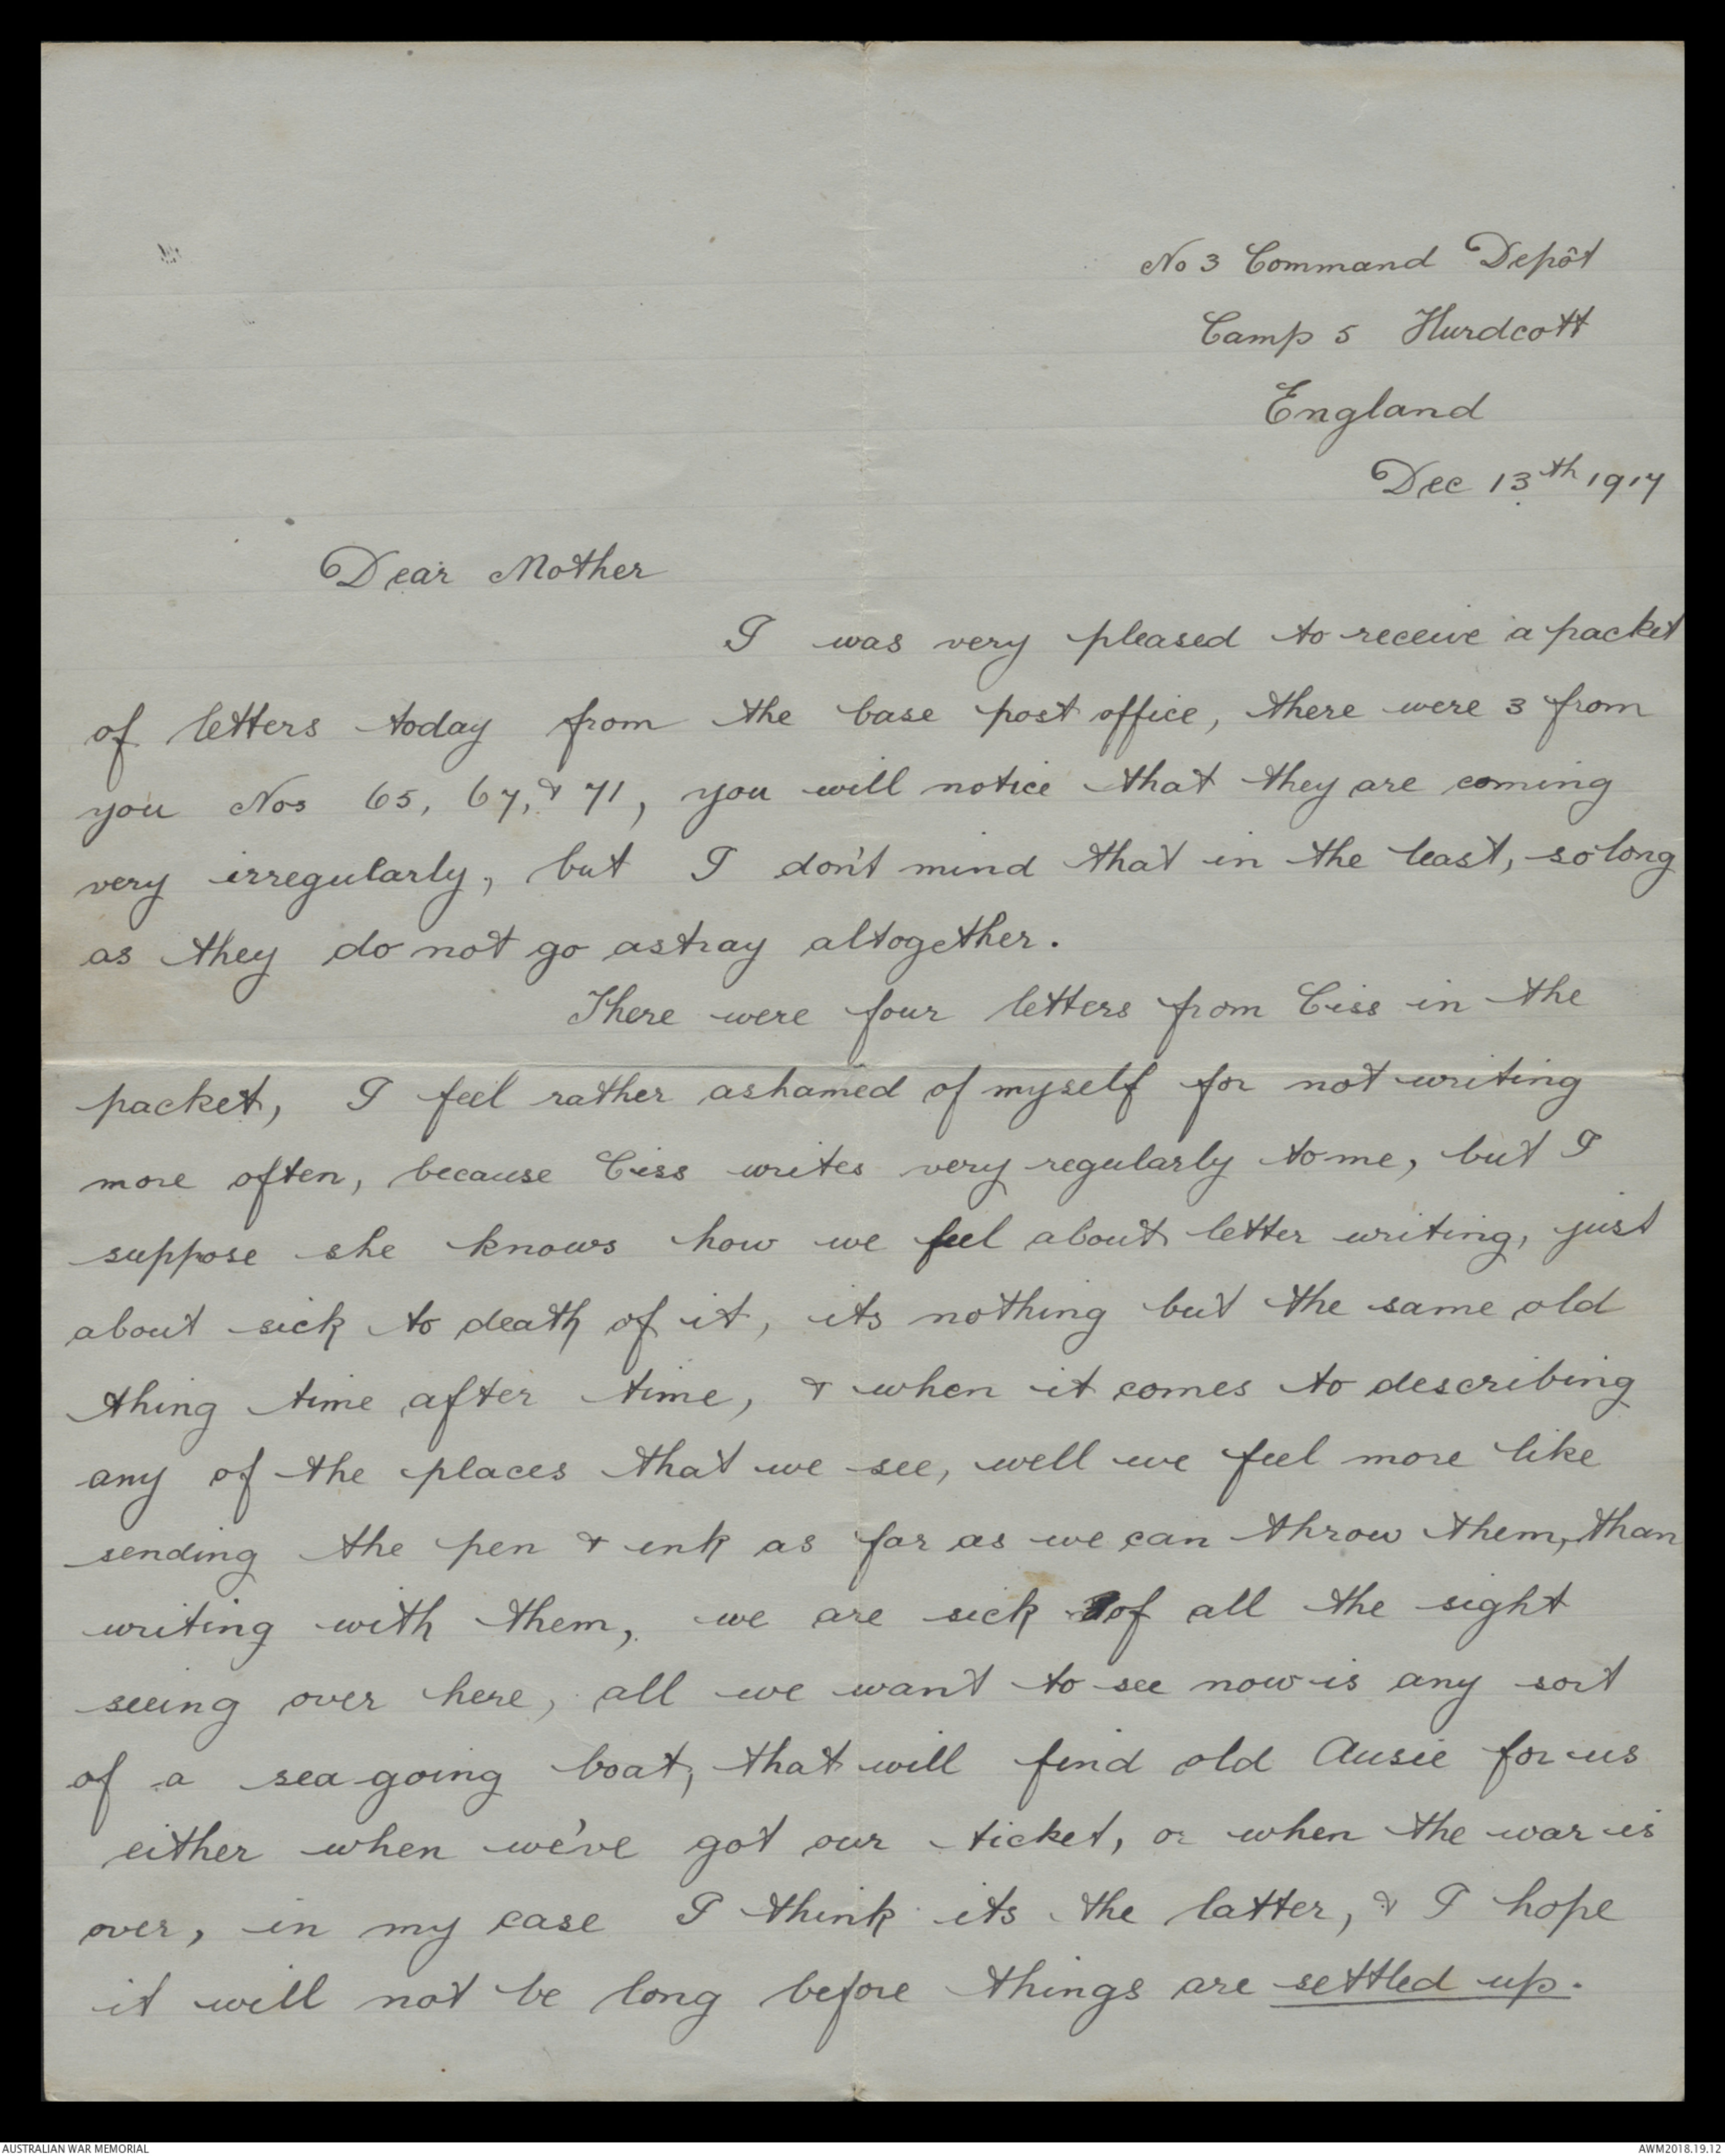 No 3 Command Depôt
Camp 5 Hurdcott
England
Dec 13th 1917
Dear Mother
I was very pleased to receive a packet
of letters today from the base post office, there were 3 from
you Nos 65, 67, & 71, you will notice that they are coming
very irregularly, but I don't mind that in the least, so long
as they do not go astray altogether.
There were four letters from Ciss in the
packet, I feel rather ashamed of myself for not writing
more often, because Ciss writes very regularly to me, but I
suppose she knows how we feel about letter writing, just
about sick to death of it, its nothing but the same old
thing time after time, & when it comes to describing
any of the places that we see, well we feel more like
sending the pen & ink as far as we can throw them, than
writing with them, we are sick of all the sight
seeing over here, all we want to see now is any sort
of a sea going boat, that will find old Ausie for us
either when we've got our ticket, or when the war is
over, in my case I think its the latter, & I hope
it will not be long before things are settled up.
AUSTRALIAN WAR MEMORIAL
AWM2018.19.12